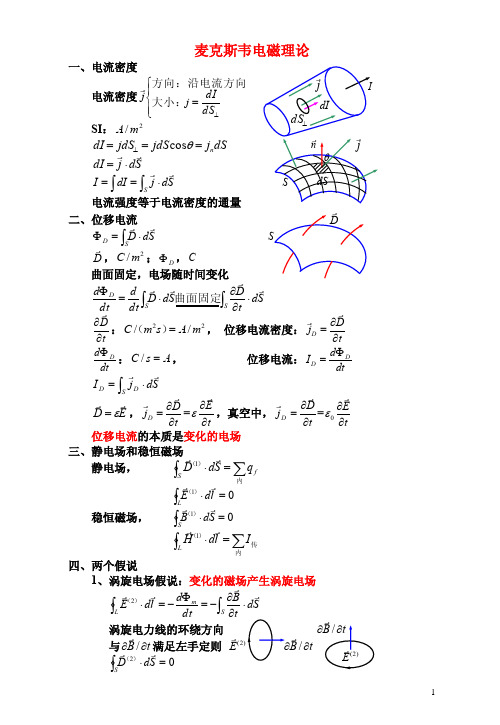 麦克斯韦电磁理论
一、电流密度
电流密度 j⃗ { 方向：沿电流方向
大小：j = dI/dS⊥
SI：A/m²
dI = jdS⊥ = jdS cosθ = jₙdS
dI = j⃗ · dS⃗
I = ∫dI = ∫_S j⃗ · dS⃗
电流强度等于电流密度的通量
j⃗ I
dI
dS⊥
n⃗ j⃗
θ
S dS
二、位移电流
Φ_D = ∫_S D⃗ · dS⃗
D⃗，C/m²；Φ_D，C
曲面固定，电场随时间变化
D⃗
S
dΦ_D/dt = d/dt ∫_S D⃗ · dS⃗ 曲面固定 ∫_S ∂D⃗/∂t · dS⃗
∂D⃗/∂t：C/（m²s）= A/m²， 位移电流密度：j⃗_D = ∂D⃗/∂t
dΦ_D/dt：C/s = A， 位移电流：I_D = dΦ_D/dt
I_D = ∫_S j⃗_D · dS⃗
D⃗ = εE⃗，j⃗_D = ∂D⃗/∂t = ε ∂E⃗/∂t，真空中，j⃗_D = ∂D⃗/∂t = ε₀ ∂E⃗/∂t
位移电流的本质是变化的电场
三、静电场和稳恒磁场
静电场， ∮_S D⃗⁽¹⁾ · dS⃗ = ∑_内 q_f
∮_L E⃗⁽¹⁾ · dl⃗ = 0
稳恒磁场， ∮_S B⃗⁽¹⁾ · dS⃗ = 0
∮_L H⃗⁽¹⁾ · dl⃗ = ∑_内 I_传
四、两个假说
1、涡旋电场假说：变化的磁场产生涡旋电场
∮_L E⃗⁽²⁾ · dl⃗ = −dΦ_m/dt = −∫_S ∂B⃗/∂t · dS⃗
涡旋电力线的环绕方向
与∂B⃗/∂t满足左手定则
E⃗⁽²⁾ ∂B⃗/∂t
∂B⃗/∂t
E⃗⁽²⁾
∮_S D⃗⁽²⁾ · dS⃗ = 0
1